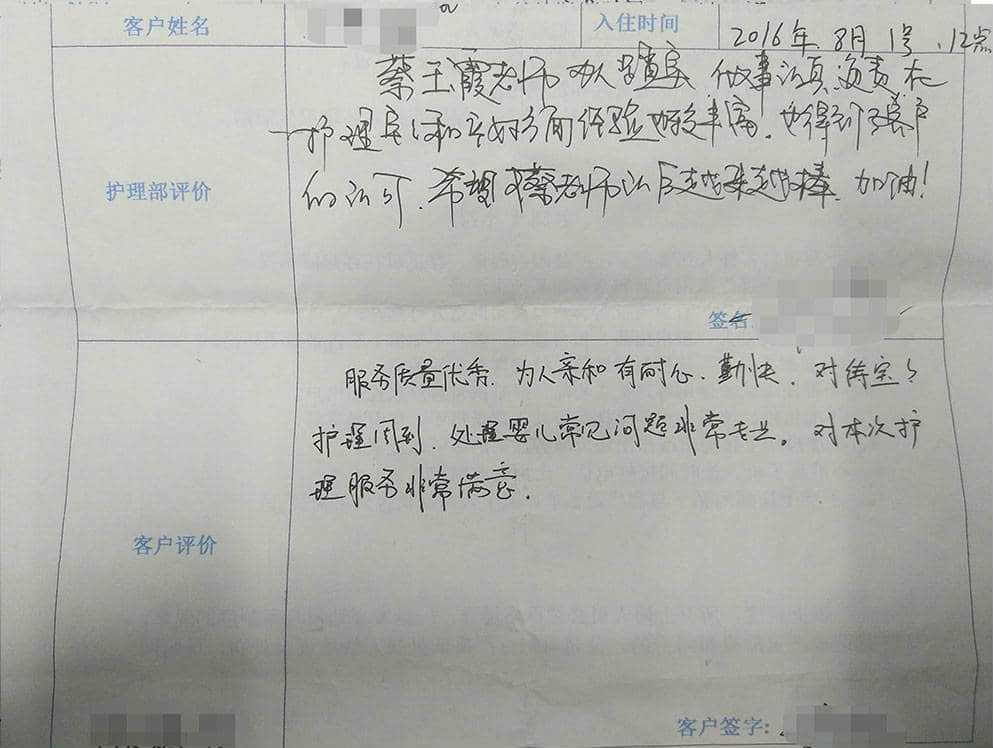 客户姓名
入住时间
2016年 8月 1号 .12点
蔡玉霞老师 为人踏实 做事认真 负责 在
护理宝宝和 方面 经验 丰富. 也得到了客户
的认可. 希望 蔡老师以后越来越棒. 加油!
护理部评价
签名
服务质量优秀. 为人亲和有耐心. 勤快. 对待宝宝
护理周到. 处理婴儿常见问题非常专业. 对本次护
理服务非常满意.
客户评价
客户签字: